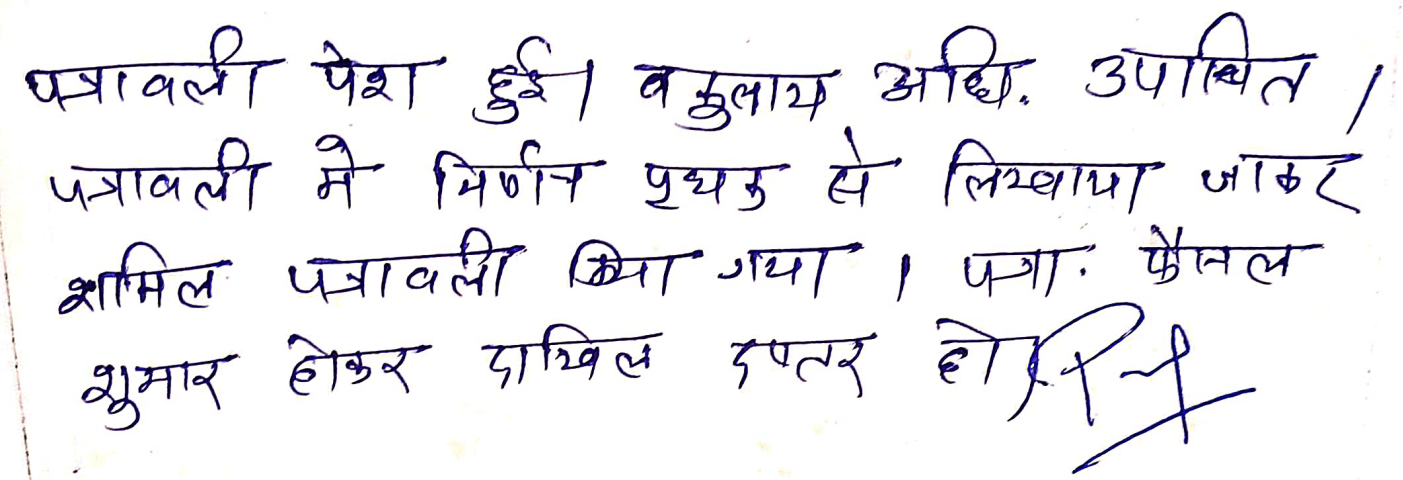 पत्रावली पेश हुई। वकुलाय अधि. उपस्थित।
पत्रावली मे निर्णय पृथक से लिखवाया जाकर
शामिल पत्रावली किया गया। पत्रा. फैसल
शुमार होकर दाखिल दफ्तर हो।